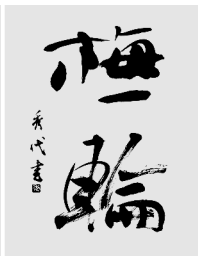 梅一輪
秀代書